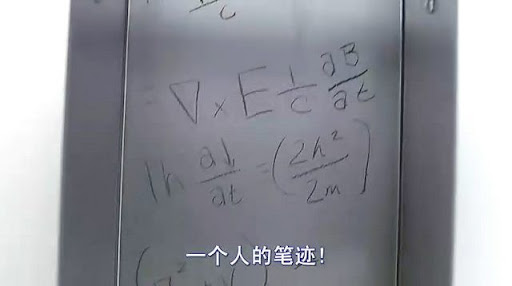 c
∇ × E 1/c ∂B/∂t
ih ∂ψ/∂t = (2h²/2m)
一个人的笔迹!